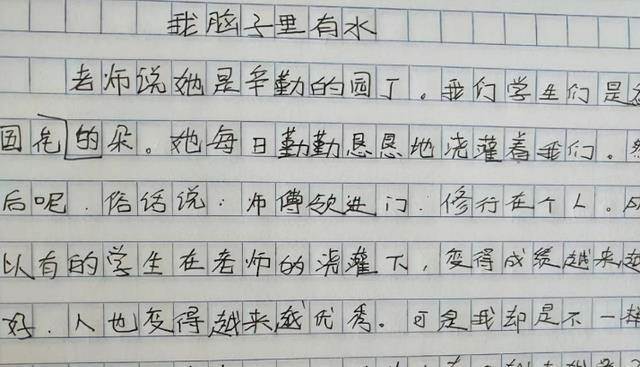 我脑子里有水
老师说她是辛勤的园丁。我们学生们是
园花的朵。她每日勤勤恳恳地浇灌着我们。
后呢.俗话说:师傅领进门.修行在个人。
以有的学生在老师的浇灌下,变得成绩越来越
好.人也变得越来越优秀。可是我却是不一样